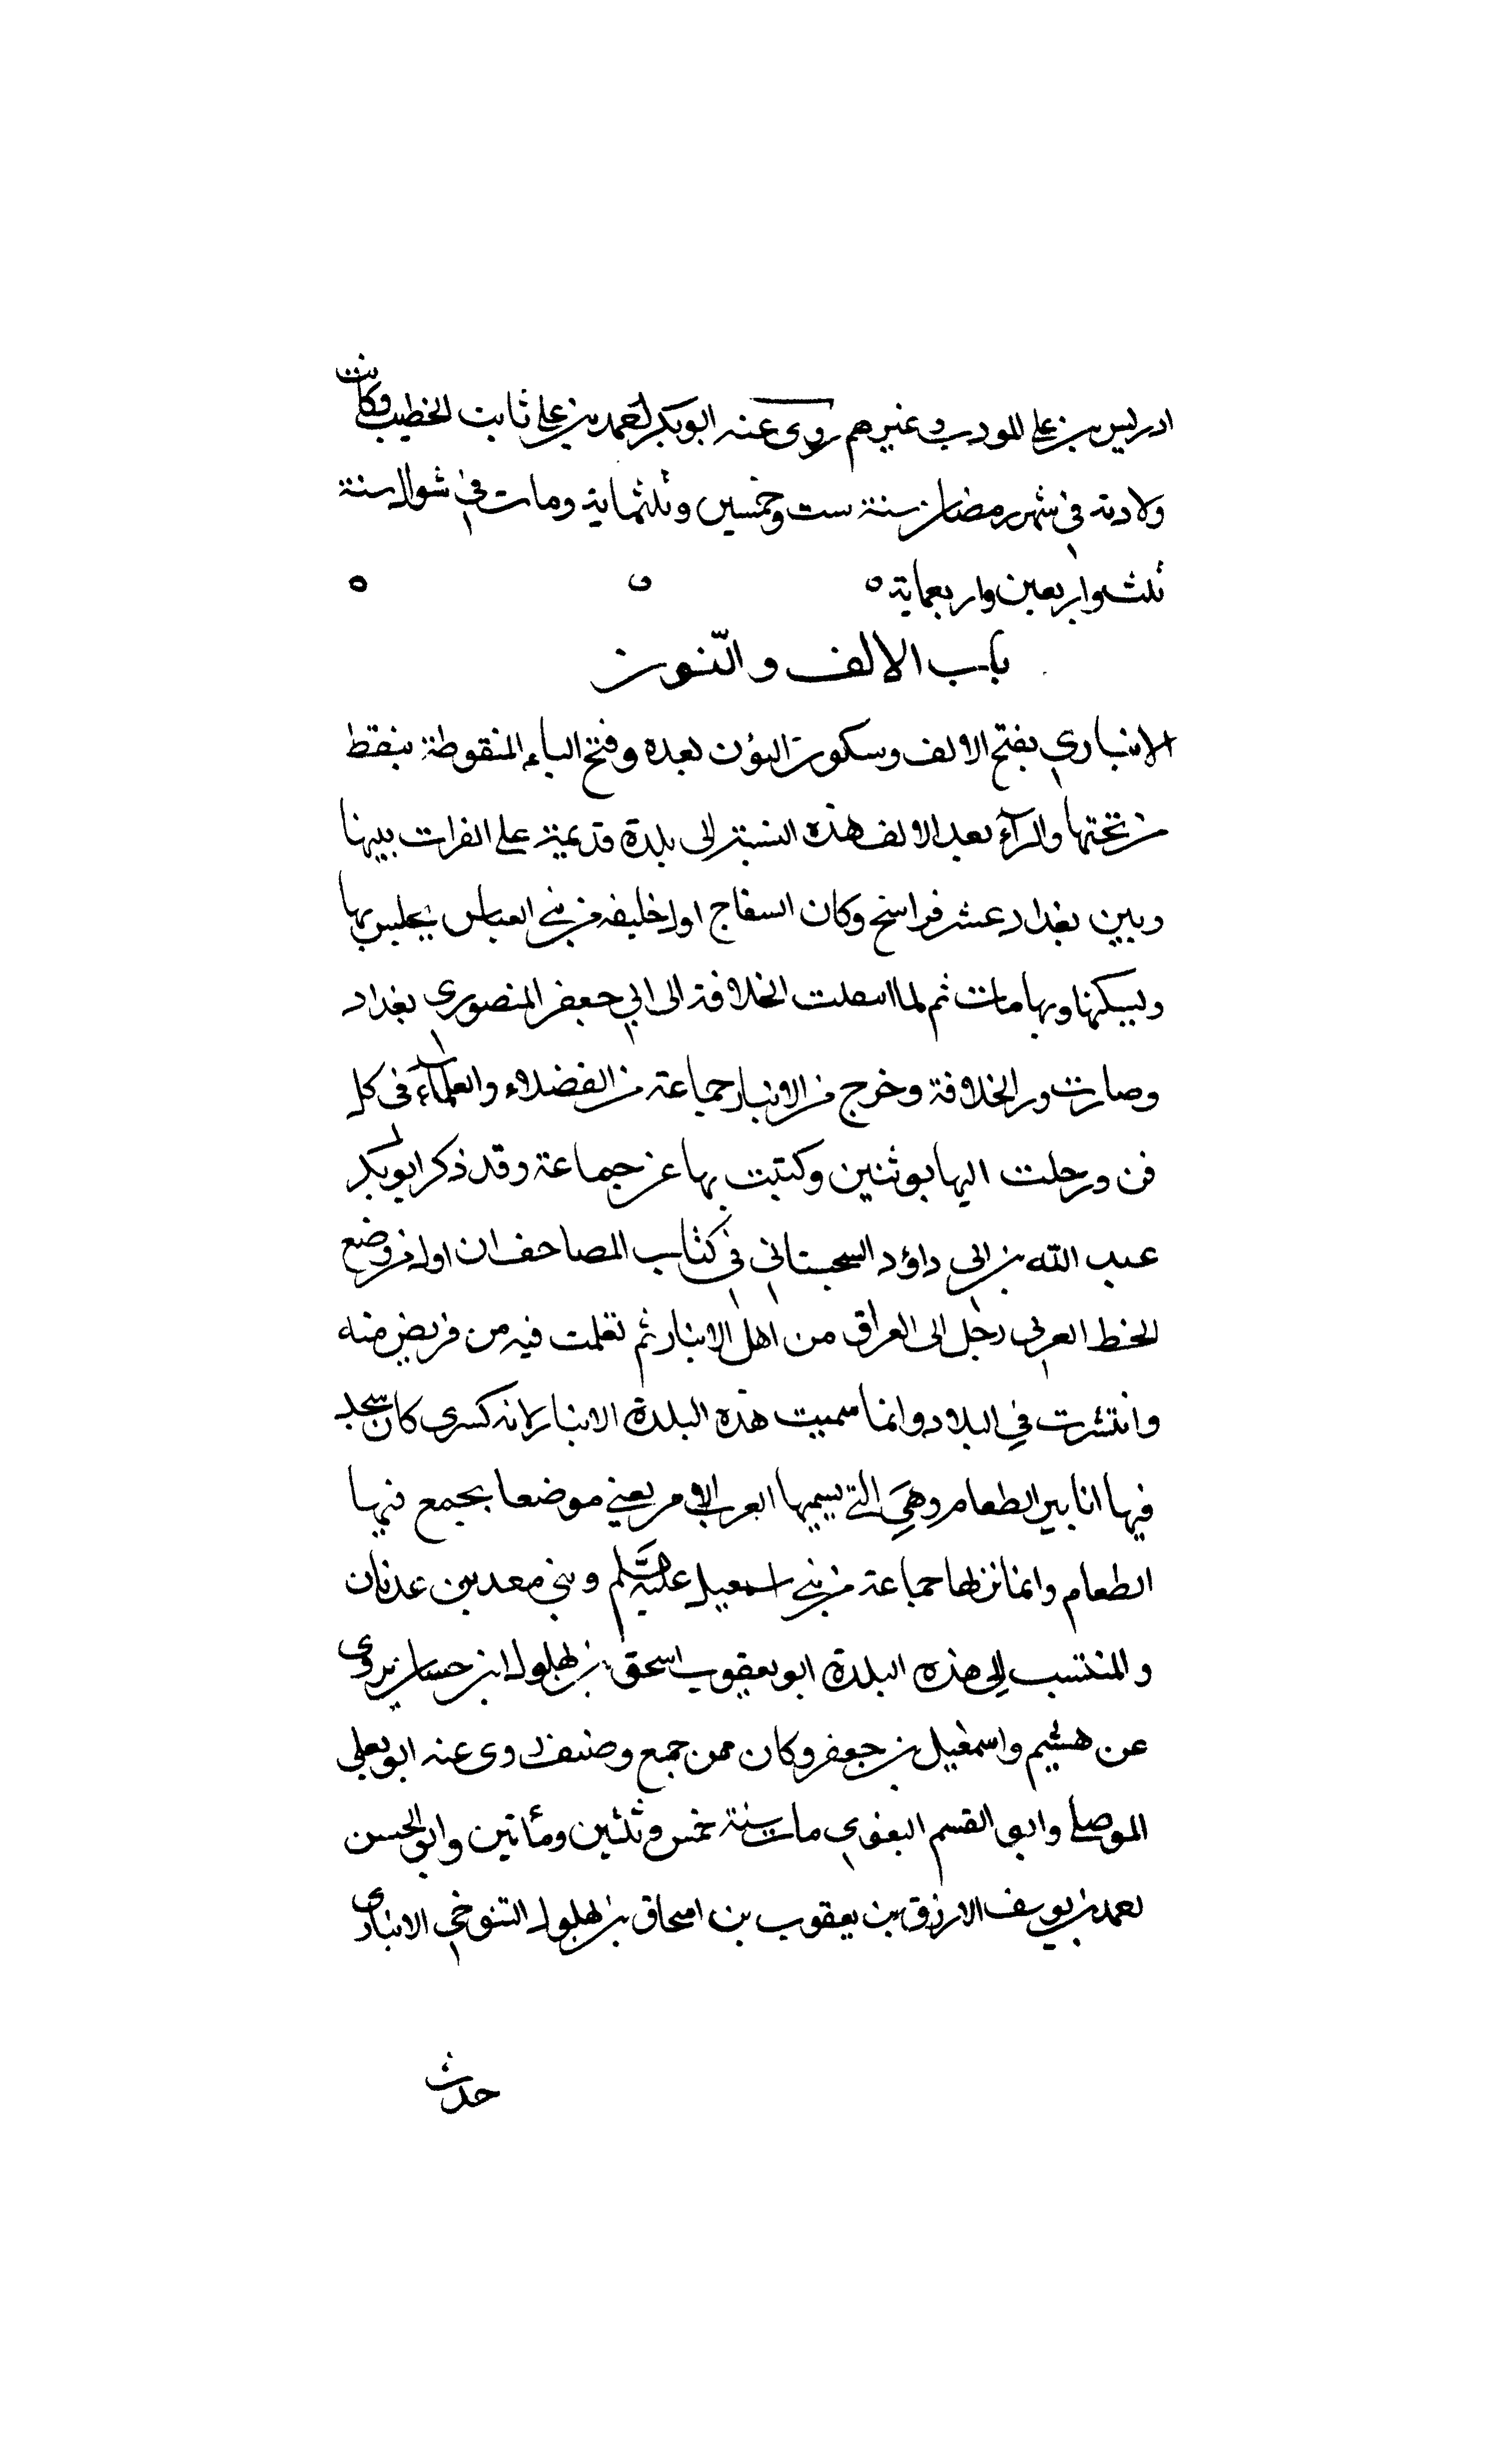 ادريس بن علي المودب وغيرهم روى عنه ابو بكر احمد بن علي ثابت الخطيب وكانت
ولادته في شهر رمضان سنة ست وخمسين وثلثماية ومات في شوال سنة
ثلث واربعين واربعماية ه ه ه
باب الالف والنون
الانباري بفتح الالف وسكون النون بعده وفتح الباء المنقوطة بنقط
من تحتها والرآء بعد الالف هذه النسبة الى بلدة قديمة على الفرات بينها
وبين بغداد عشر فراسخ وكان السفاح اول خليفه من بني العباس يجلس بها
ويسكنها وبها مات ثم لما انتقلت الخلافة الى ابي جعفر المنصور بغداد
وصارت الخلافة وخرج من الانبار جماعة من الفضلاء والعلمآء في كل
فن ورحلت اليها نوبتين وكتبت بها عن جماعة وقد ذكر ابو بكر
عبد الله بن ابي داؤد السجستاني في كتاب المصاحف ان اول من وضع
الخط العربي رجل الى العراق من اهل الانبار ثم تعلمت فيه من قريض منه
وانتشرت في البلاد وانما سميت هذه البلدة الانبار لانه كسرى كان
فيها انابير الطعام وهي التي يسميها العرب يعني موضعا يجمع فيها
الطعام وانما نزلها جماعة من بني اسمعيل عليه السلم وبني معد بن عدنان
والمنتسب الى هذه البلدة ابو يعقوب اسحق بن بهلول ابن حسان يروى
عن هشيم واسمعيل بن جعفر وكان ممن جمع وصنف روى عنه ابو يعلى
الموصلي وابو القسم البغوي مات سنة خمس وثلثين ومأتين وابو الحسن
احمد بن يوسف الازرق بن يعقوب بن اسحاق بن بهلول التنوخي الانبارى
حدث